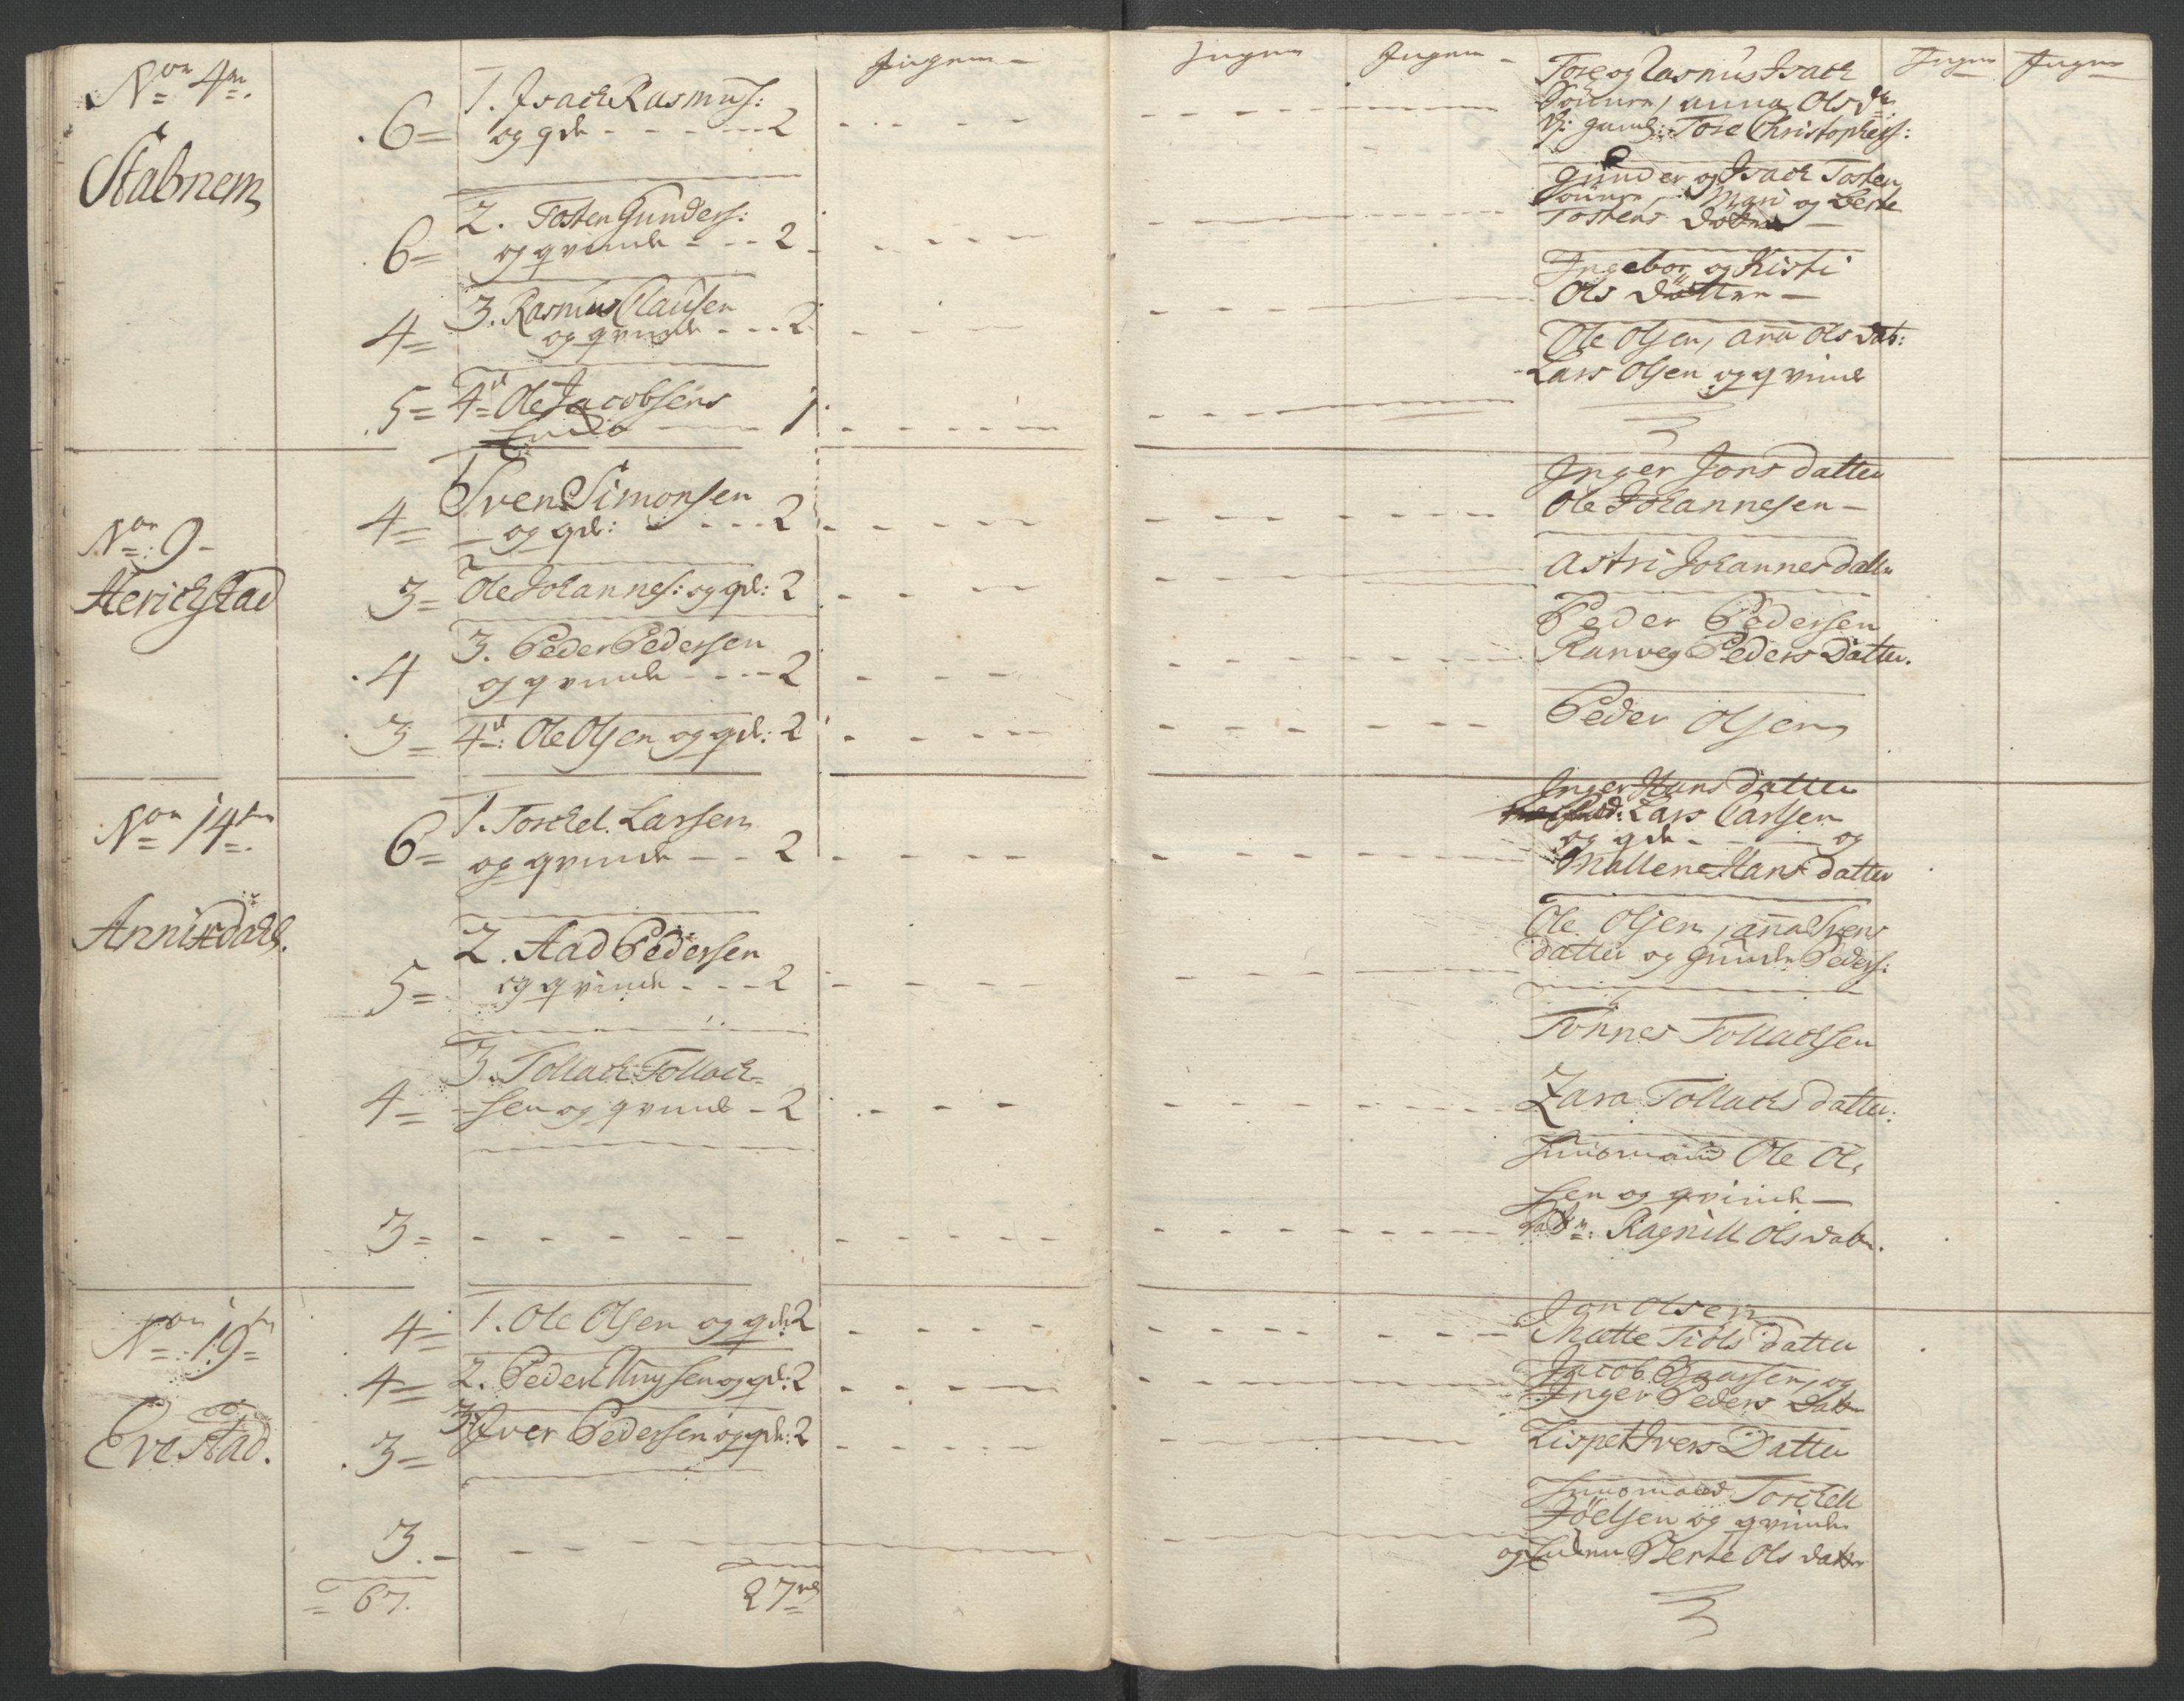 Ingen
Non 4de.
Stabnem
6= 1. Isach Rasmus:
og qde - - - 2
6= 2. Tosten Gunders:
og qvinde - - - 2
4= 3. Rasmus Clausen
og qvinde - - - 2
5= 4d Ole Jacobsens
Encke 1
Non: 9-
Herichstad
4= 1 Sven Simonsen
og qde: - - - 2
3= 2 Ole Johannes: og qde: 2
4 3. Peder Pedersen
og qvinde - - - 2
3= 4d: Ole Olsen og qde: 2
Non 14ten
Annisdahl.
6= 1. Torchel Larsen
og qvinde - - 2
5= 2. Aad Pedersen
og qvinde - - - 2
4= 3. Tollach Tollach=
sen og qvinde - 2
3= - - - - -
Non 19ten
Evestad.
4= 1. Ole Olsen og qde 2
4= 2. Peder Amysen og qde: 2
3= 3. Iver Pedersen og qde: 2
3. -
= 67.
27
Ingen Ingen Ingen Ingen
Tore og Rasmus Isach
Sönner, anna Olsdr
Tore Christophers:
Gunder og Isach Tosten
Sönner, Mari og Berte
Tostens Dötre
Ingebor og Kisti
Ols Dötter
Ole Olsen, ana Olsdat:
Lars Olsen og qvinde
Inger Jons datter
Ole Johannesen
Astri Johannes datter
Peder Pedersen
Ranveg Peders Datter.
Peder Olsen
Inger Hans datter
Lars Larssen
og qde - og
Mallene Hans datter
Ole Olsen, ana Svens
datter og Gunder Peders:
Tönnes Tollachsen
Zara Tollachs datter:
Huusmand Ole Ol,
sen og qvinde
Ragnill Ols datr.
Jon Olsen
Mætte Tiöls datter
Jacob Baarsen, og
Inger Peders datr
Lispet Ivers Datter
Huusmand Torchell
Jöelsen og qvinde
og Encken Berte Ols datter